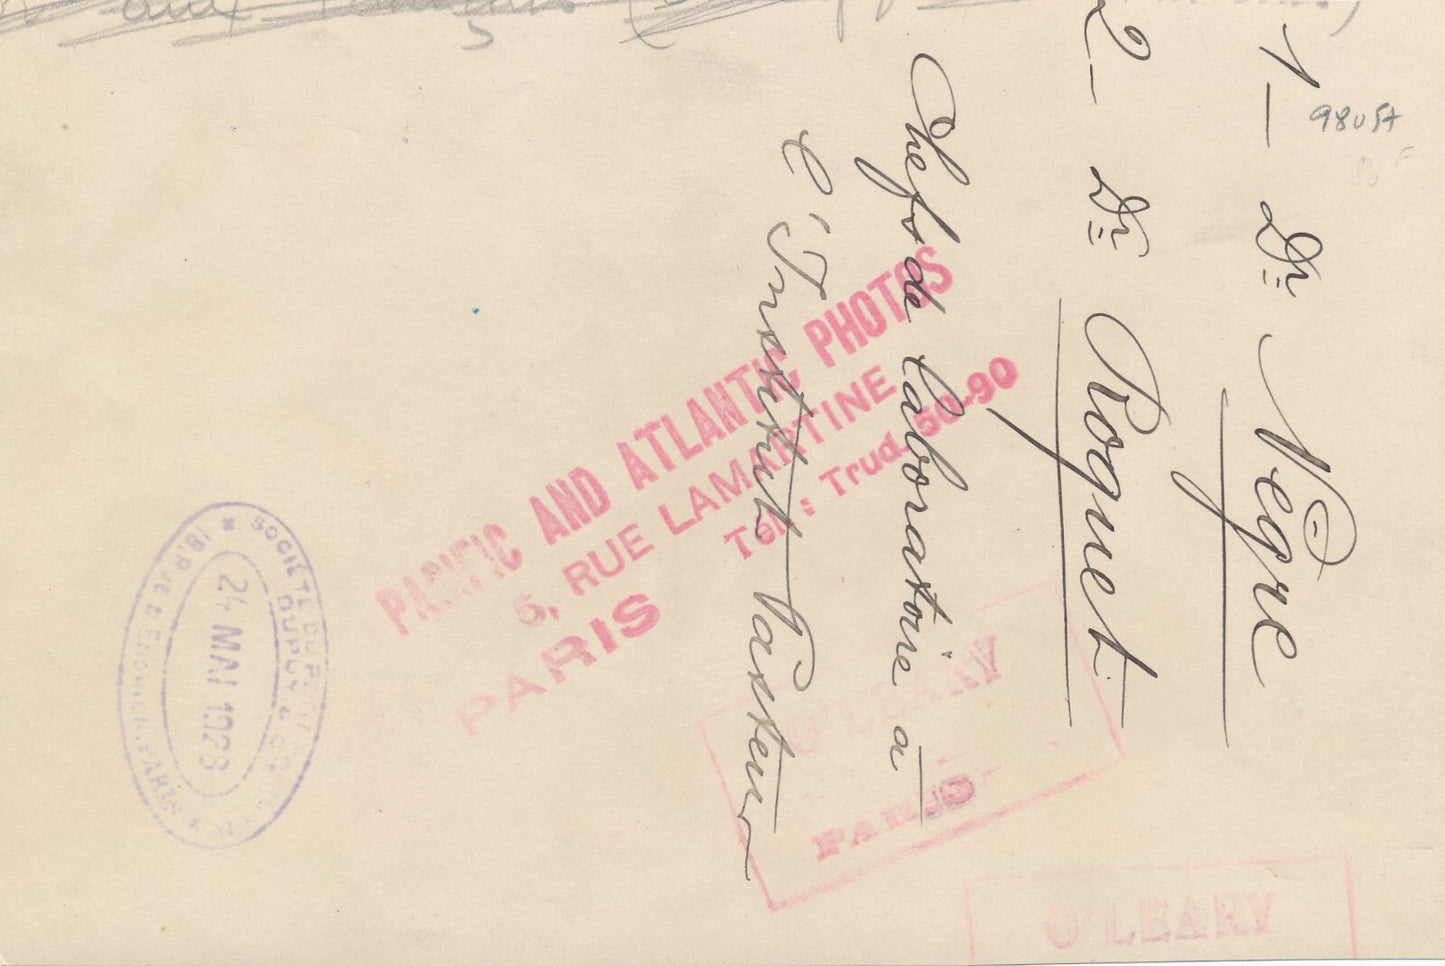 1 - Dr Nègre
2 - Dr Roquet
Chefs de laboratoire à
l'Institut Pasteur
PACIFIC AND ATLANTIC PHOTOS
5, RUE LAMARTINE
Tél : Trud. 50-90
PARIS
O'LEARY
PARIS
O'LEARY
SOCIÉTÉ DU PETIT PARISIEN
DUPUY & Cie
24 MAI 1928
18, RUE D'ENGHIEN, PARIS